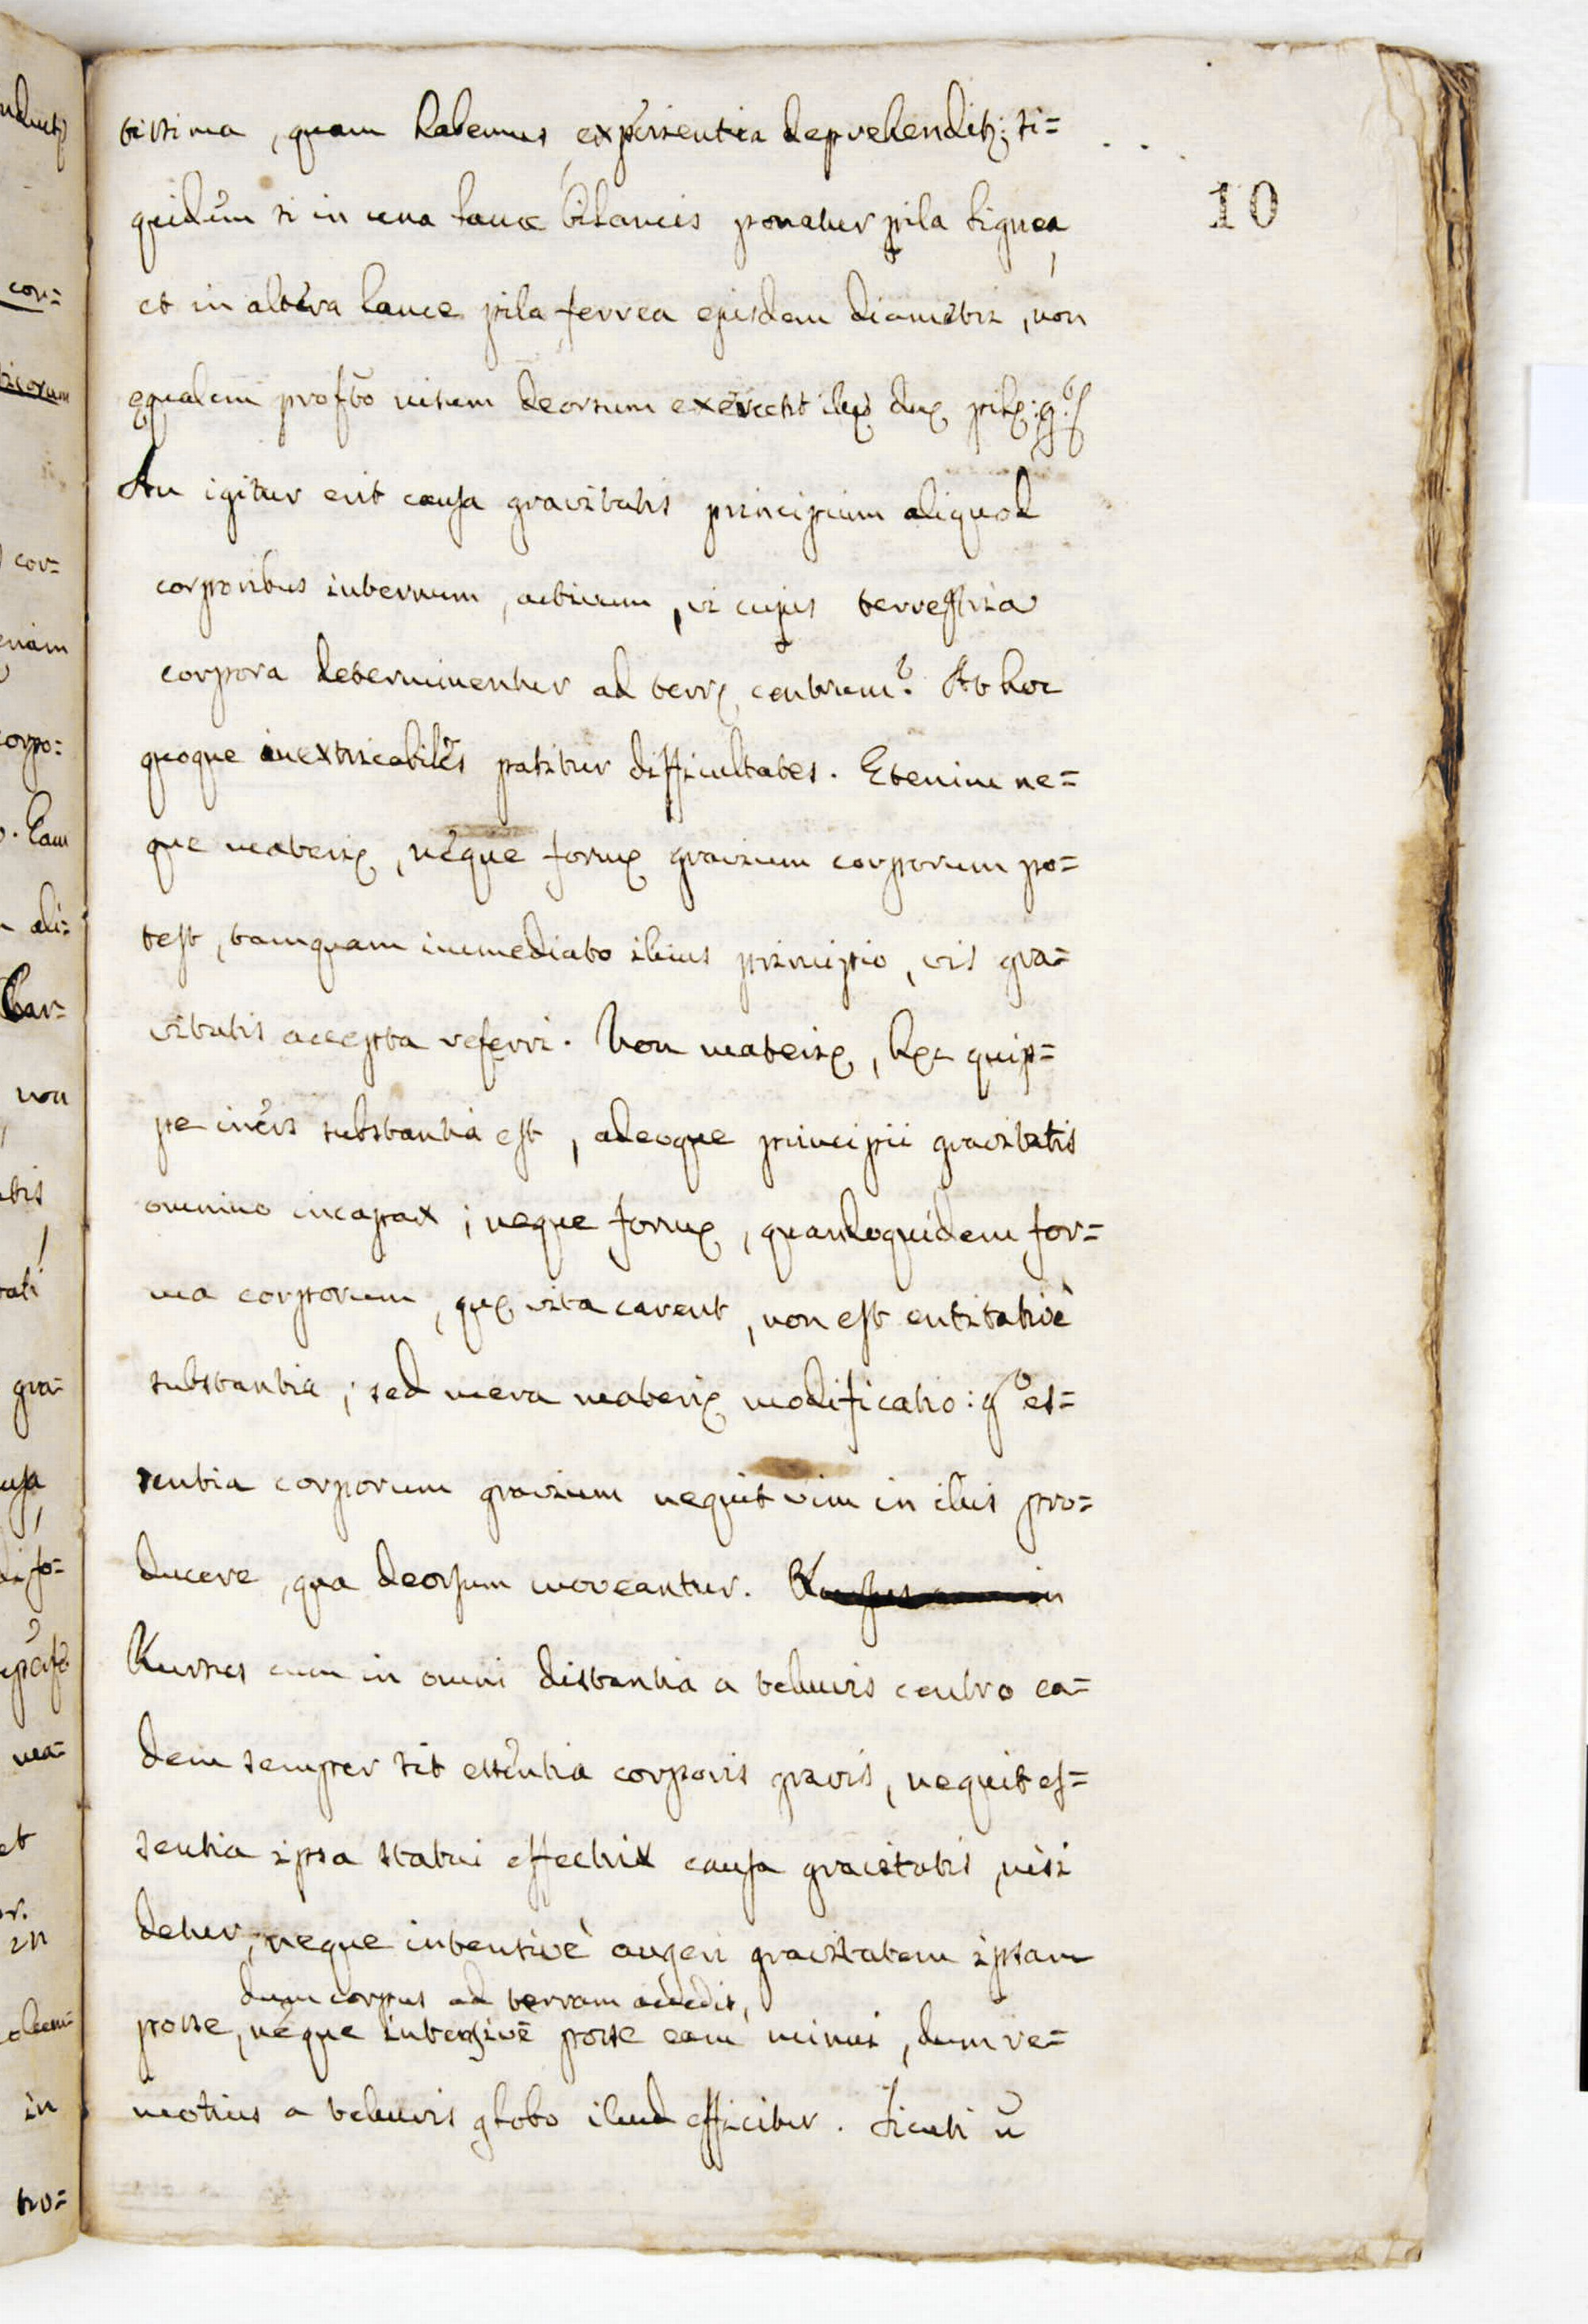 tissima, quam habemus experientia deprehenditr; si=
10
quidem si in una lance bilancis ponatur pila lignea,
et in altera lance pila ferrea ejusdem diametri, non
ęqualem profto nisum deorsum exercent illę duę pilę: go
An igitur erit causa gravitatis principium aliquod
corporibus internum, activum, vi cujus terrestria
corpora determinentur ad terrę centrum? At hoc
quoque inextricabiles patitur difficultates. Etenim ne=
que materię, neque formę gravium corporum po=
test, tamquam immediato illius principio, vis gra=
vitatis accepta referri. Non materię, hęc quip=
pe iners substantia est, adeoque principii gravitatis
omnino incapax; neque formę, quandoquidem for=
ma corporum, quę vita carent, non est entitativè
substantia, sed mera materię modificatio: go es=
sentia corporum gravium nequit vim in illis pro=
ducere, qua deorsum moveantur.
Rursus cum in omni distantia a telluris centro ea=
dem semper sit essentia corporis gravis, nequit es=
sentia ipsa statui effectrix causa gravitatis, nisi
detur, neque intensivè augeri gravitatem ipsam
dum corpus ad terram accedit,
posse, neque intensivè posse eam minui, dum re=
motius a telluris globo illud efficitur. Sicuti ū